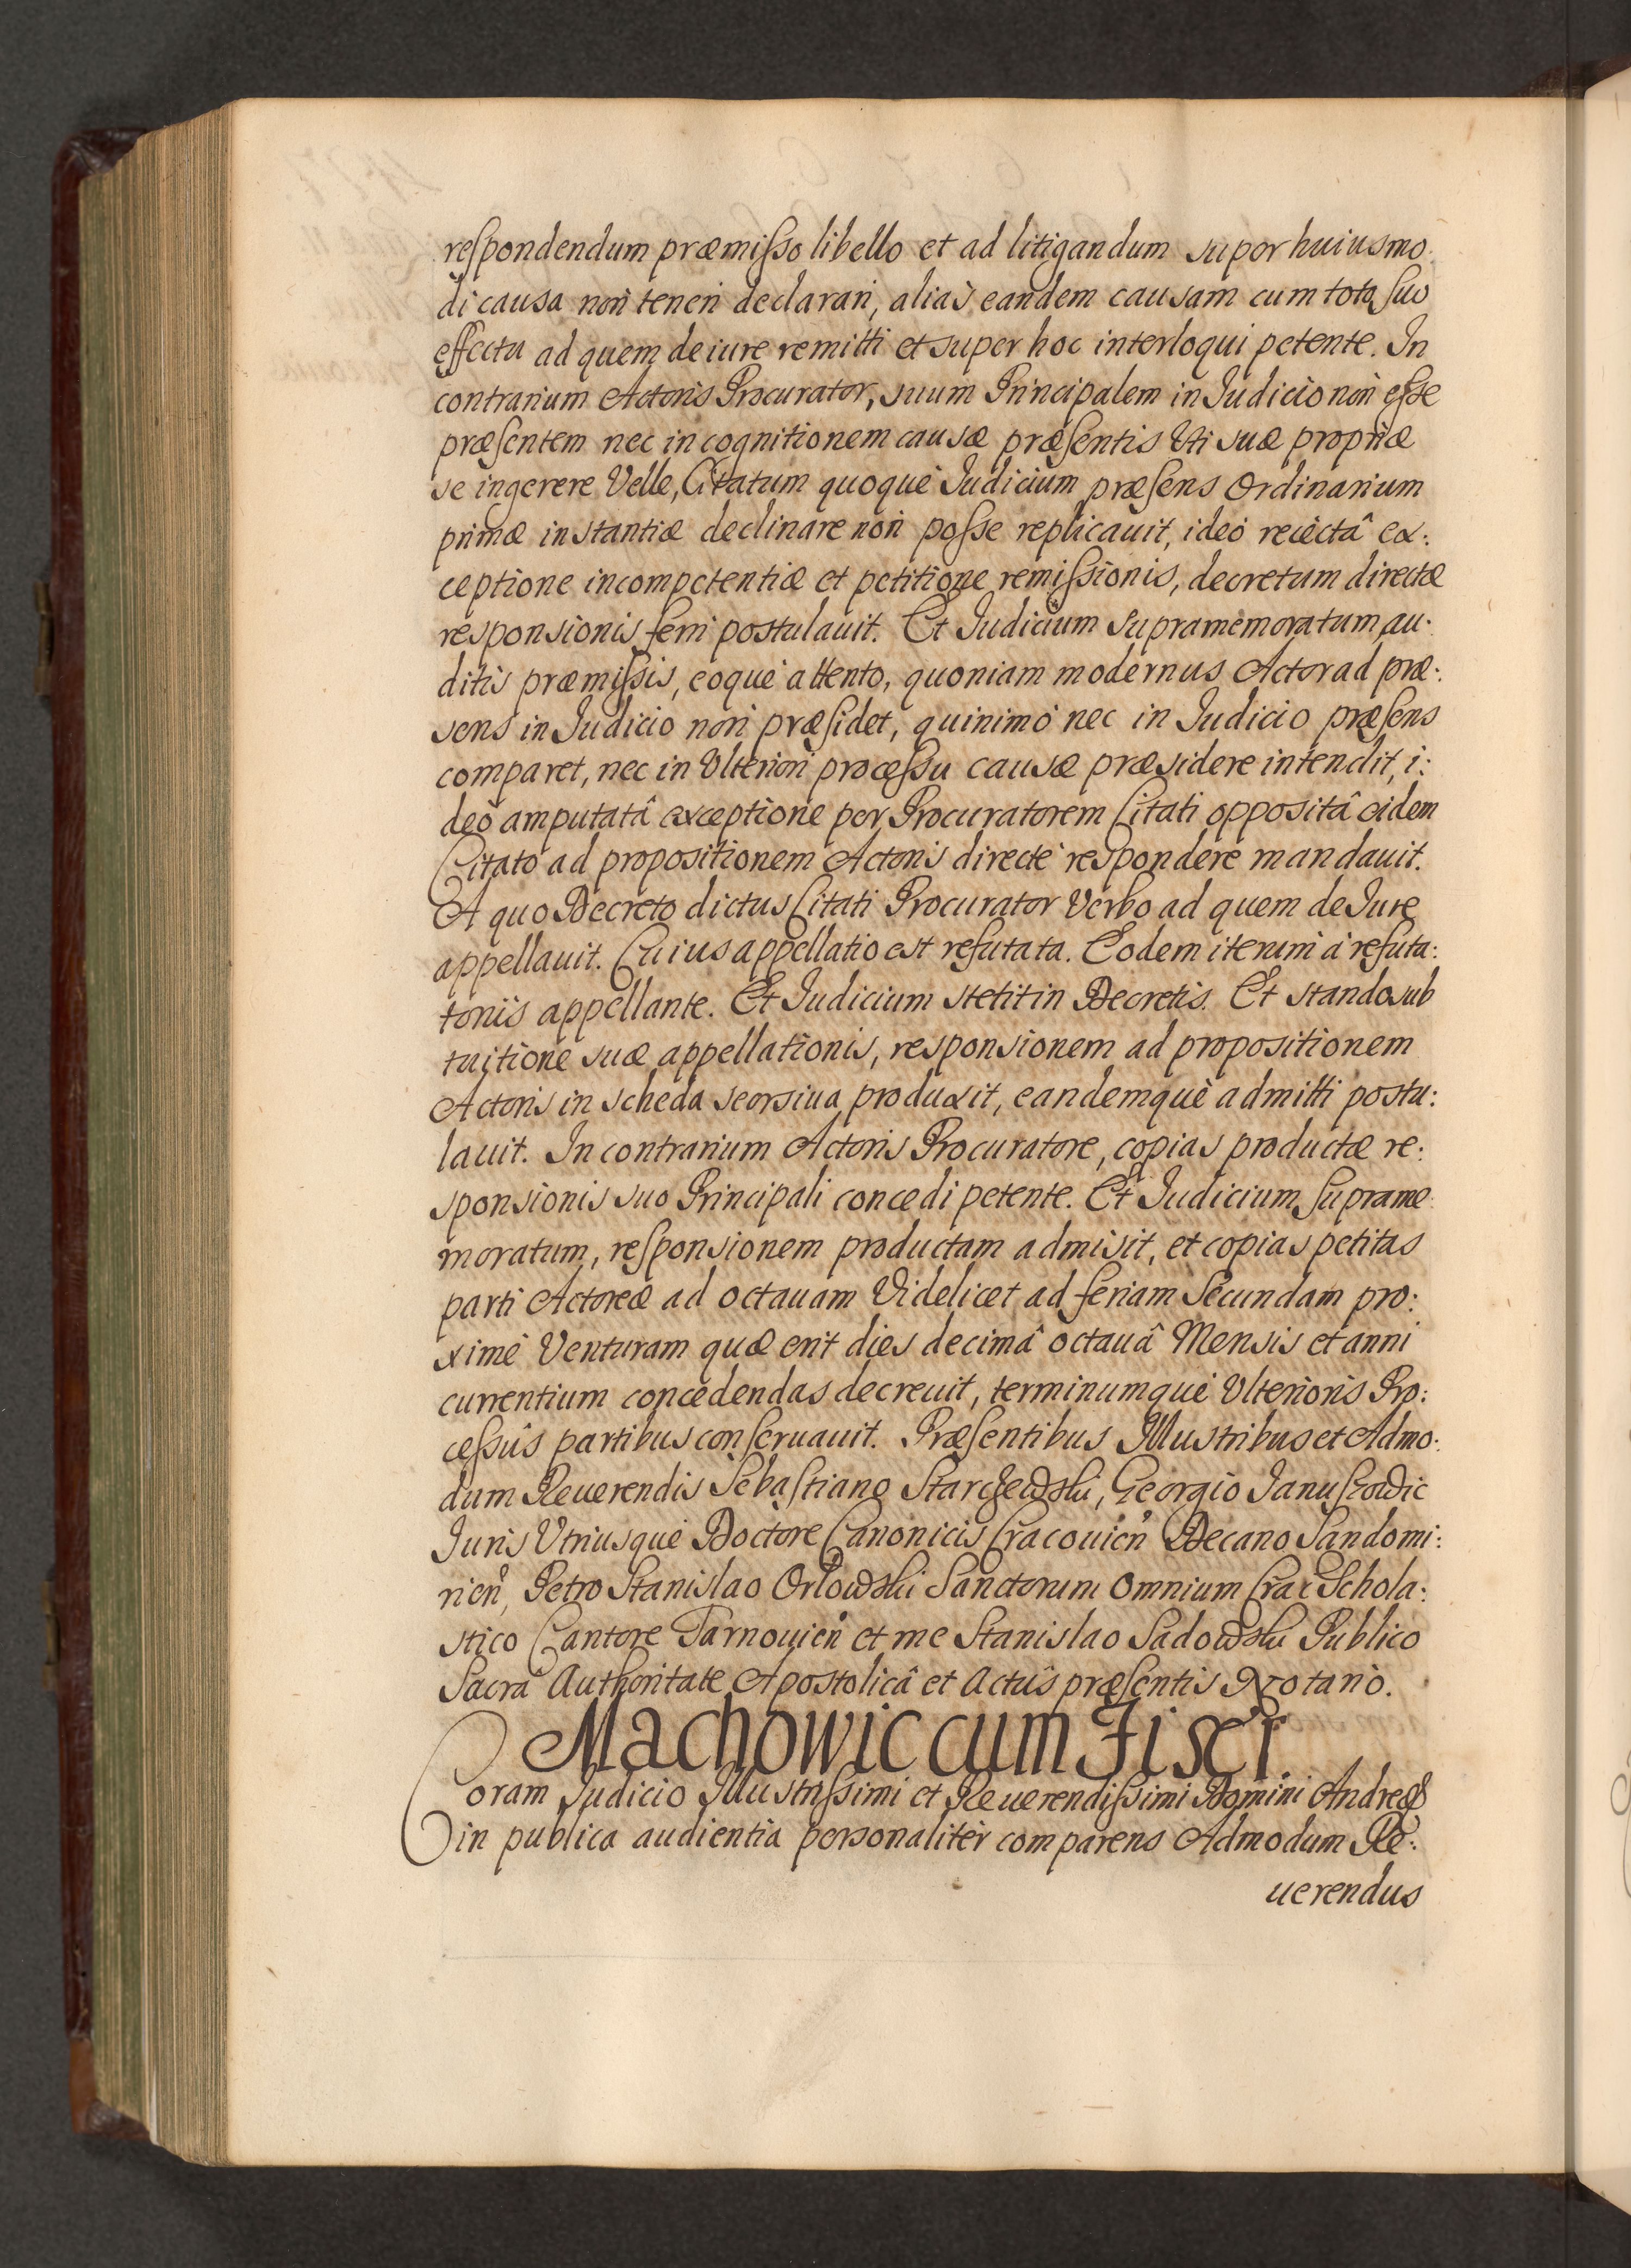 respondendum præmisso libello et ad litigandum super huiusmo:
di causa non teneri declarari, alias eandem causam cum toto suo
effectu ad quem de iure remitti et super hoc interloqui petente. In
contrarium Actoris Procurator, suum Principalem in Iudicio non esse
præsentem nec in cognitionem causæ præsentis Vti suæ propriæ
se ingerere Velle, Citatum quoquè Iudicium præsens Ordinarium
primæ instantiæ declinare non posse replicauit, ideò reiectâ ex:
ceptione incompetentiæ et petitione remissionis, decretum directæ
responsionis ferri postulauit. Et Iudicium Supramemoratum au:
ditis præmissis, eoquè attento, quoniam modernus Actor ad præ:
sens in Iudicio non præsidet, quinimò nec in Iudicio præsens
comparet, nec in Vlteriori processu causæ præsidere intendit, i:
deò amputatâ exceptione per Procuratorem Citati oppositâ eidem
Citato ad propositionem Actoris directè respondere mandauit.
A quo Decreto dictus Citati Procurator Verbo ad quem de Iure
appellauit. Cuius appellatio est refutata. Eodem iterum à refuta:
torijs appellante. Et Iudicium stetit in Decretis. Et stando sub
tuitione suæ appellationis, responsionem ad propositionem
Actoris in scheda seorsiua produxit, eandemquè admitti postu:
lauit. In contrarium Actoris Procuratore, copias productæ re:
sponsionis suo Principali concedi petente. Et Iudicium Suprame:
moratum, responsionem productam admisit, et copias petitas
parti Actoreæ ad octauam Videlicet ad feriam Secundam pro:
ximè Venturam quæ erit dies decimâ octauâ Mensis et anni
currentium concedendas decreuit, terminumquè Vlterioris Pro:
cessûs partibus conseruauit. Præsentibus Illustribus et Admo:
dum Reuerendis Sebastiano Starczewski, Georgio Januszowic
Iuris Vtriusquè Doctore Canonicis Cracouien Decano Sandomi:
rien, Petro Stanislao Orlowski Sanctorum Omnium Crac Schola:
stico Cantore Tarnouien et me Stanislao Sadowski Publico
Sacrâ Authoritate Apostolicâ et Actûs præsentis Notario.
Machowic cum Fiser
Coram Iudicio Illustrissimi et Reuerendissimi Domini Andreæ
in publica audientia personalitèr comparens Admodum Re:
uerendus